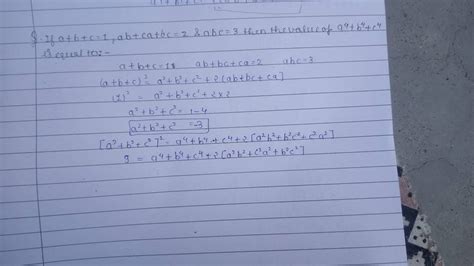 Q. If a+b+c=1, ab+ca+bc=2 & abc=3 then the value of a⁴+b⁴+c⁴
is equal to:-
a+b+c=1 ab+bc+ca=2 abc=3
(a+b+c)² = a²+b²+c²+2(ab+bc+ca)
(1)² = a²+b²+c²+2×2
a²+b²+c² = 1-4
a²+b²+c² = -3
[a²+b²+c²]² = a⁴+b⁴+c⁴+2[a²b²+b²c²+c²a²]
3 = a⁴+b⁴+c⁴+2[a²b²+c²a²+b²c²]